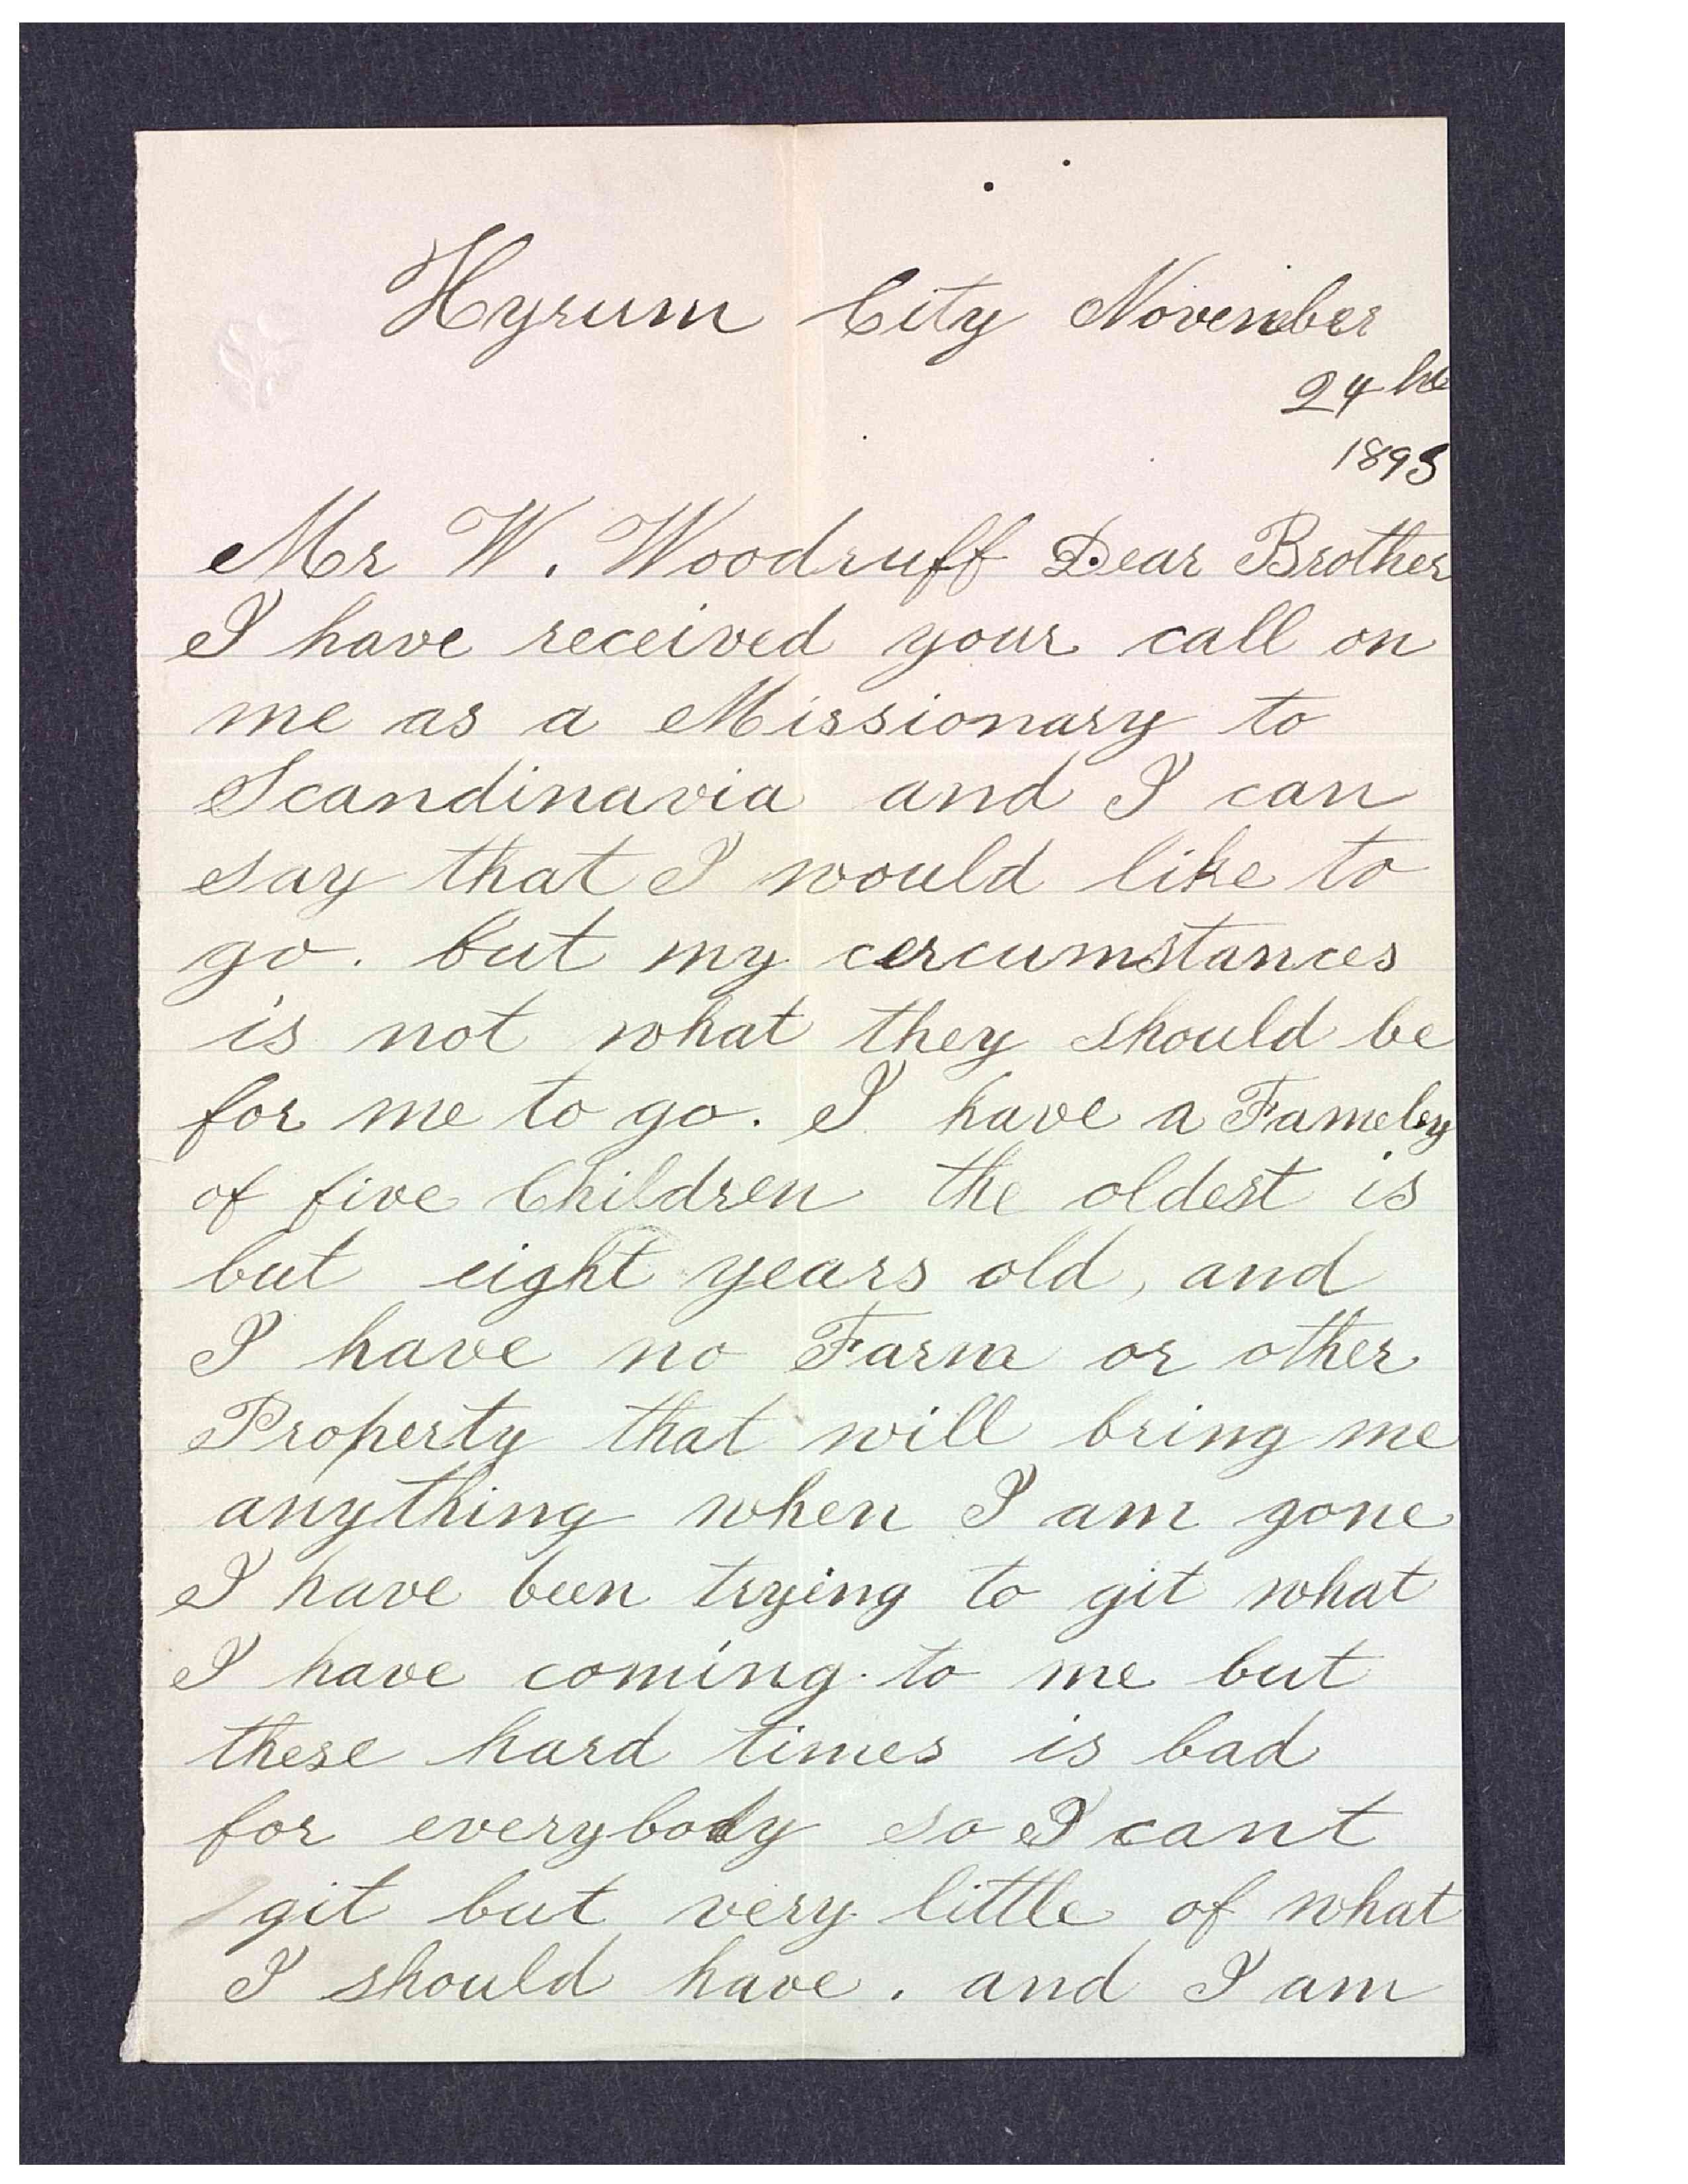 Hyrum City November
24th
1893
Mr W. Woodruff Dear Brother
I have received your call on
me as a Missionary to
Scandinavia and I can
say that I would like to
go. but my cercumstances
is not what they should be
for me to go. I have a Fameley
of five Children the oldest is
but eight years old, and
I have no Farm or other
Property that will bring me
anything when I am gone
I have been trying to git what
I have coming to me but
these hard times is bad
for everybody so I cant
git but very little of what
I should have. and I am